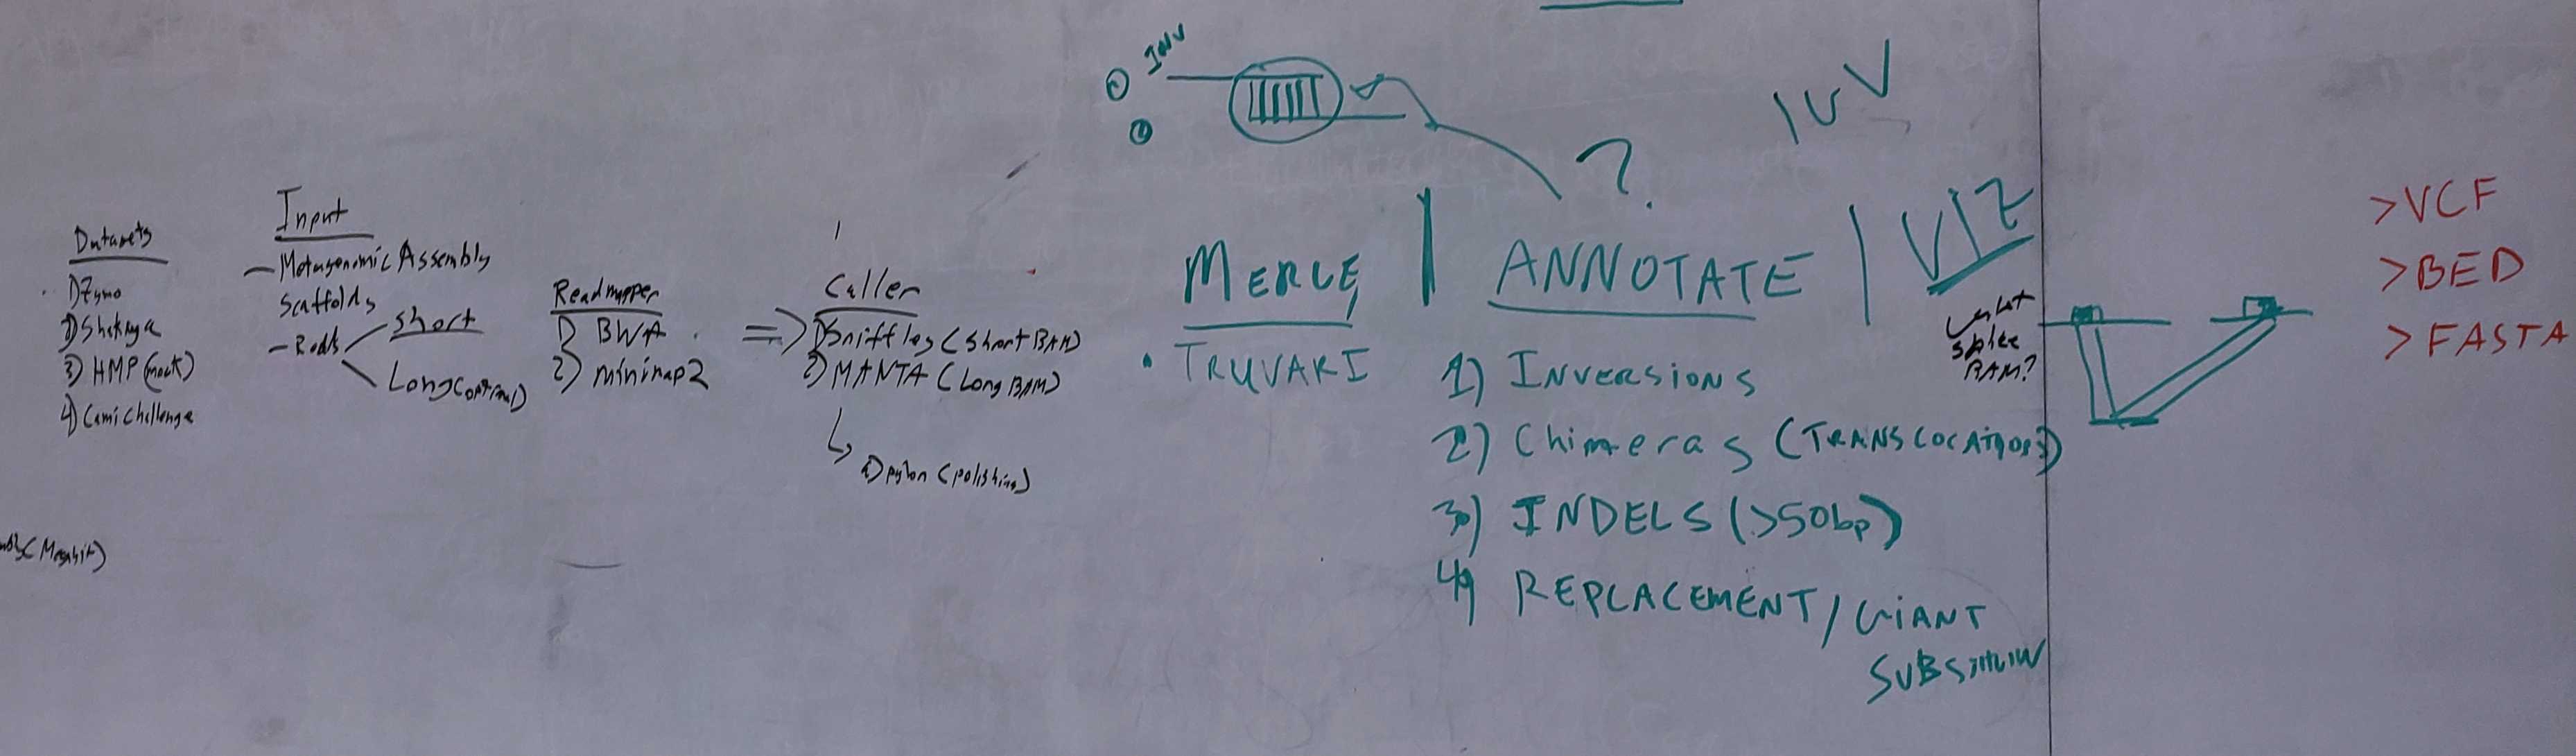 Datasets
1) Zymo
2) Shakya
3) HMP (mock)
4) Cami Challenge
(Megahit)
Input
- Metagenomic Assembly
Scaffolds
- Reads
short
Long (optional)
Readmapper
1) BWA
2) minimap2
=>
Caller
1) Sniffles (short BAM)
2) MANTA (Long BAM)
1) pylon (polishing)
INV
?
MERGE | ANNOTATE | VIZ
• TRUVARI
1) INVERSIONS
2) Chimeras (TRANSLOCATIONS)
3) INDELS (>50bp)
4) REPLACEMENT / GIANT
BAM?
>VCF
>BED
>FASTA